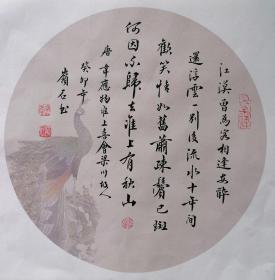 江漢曾為客相逢每醉
還浮雲一別後流水十年間
歡笑情如舊蕭疎鬢已斑
何因不歸去淮上有秋山
唐韋應物淮上喜會梁川故人
癸卯年
嶺石書